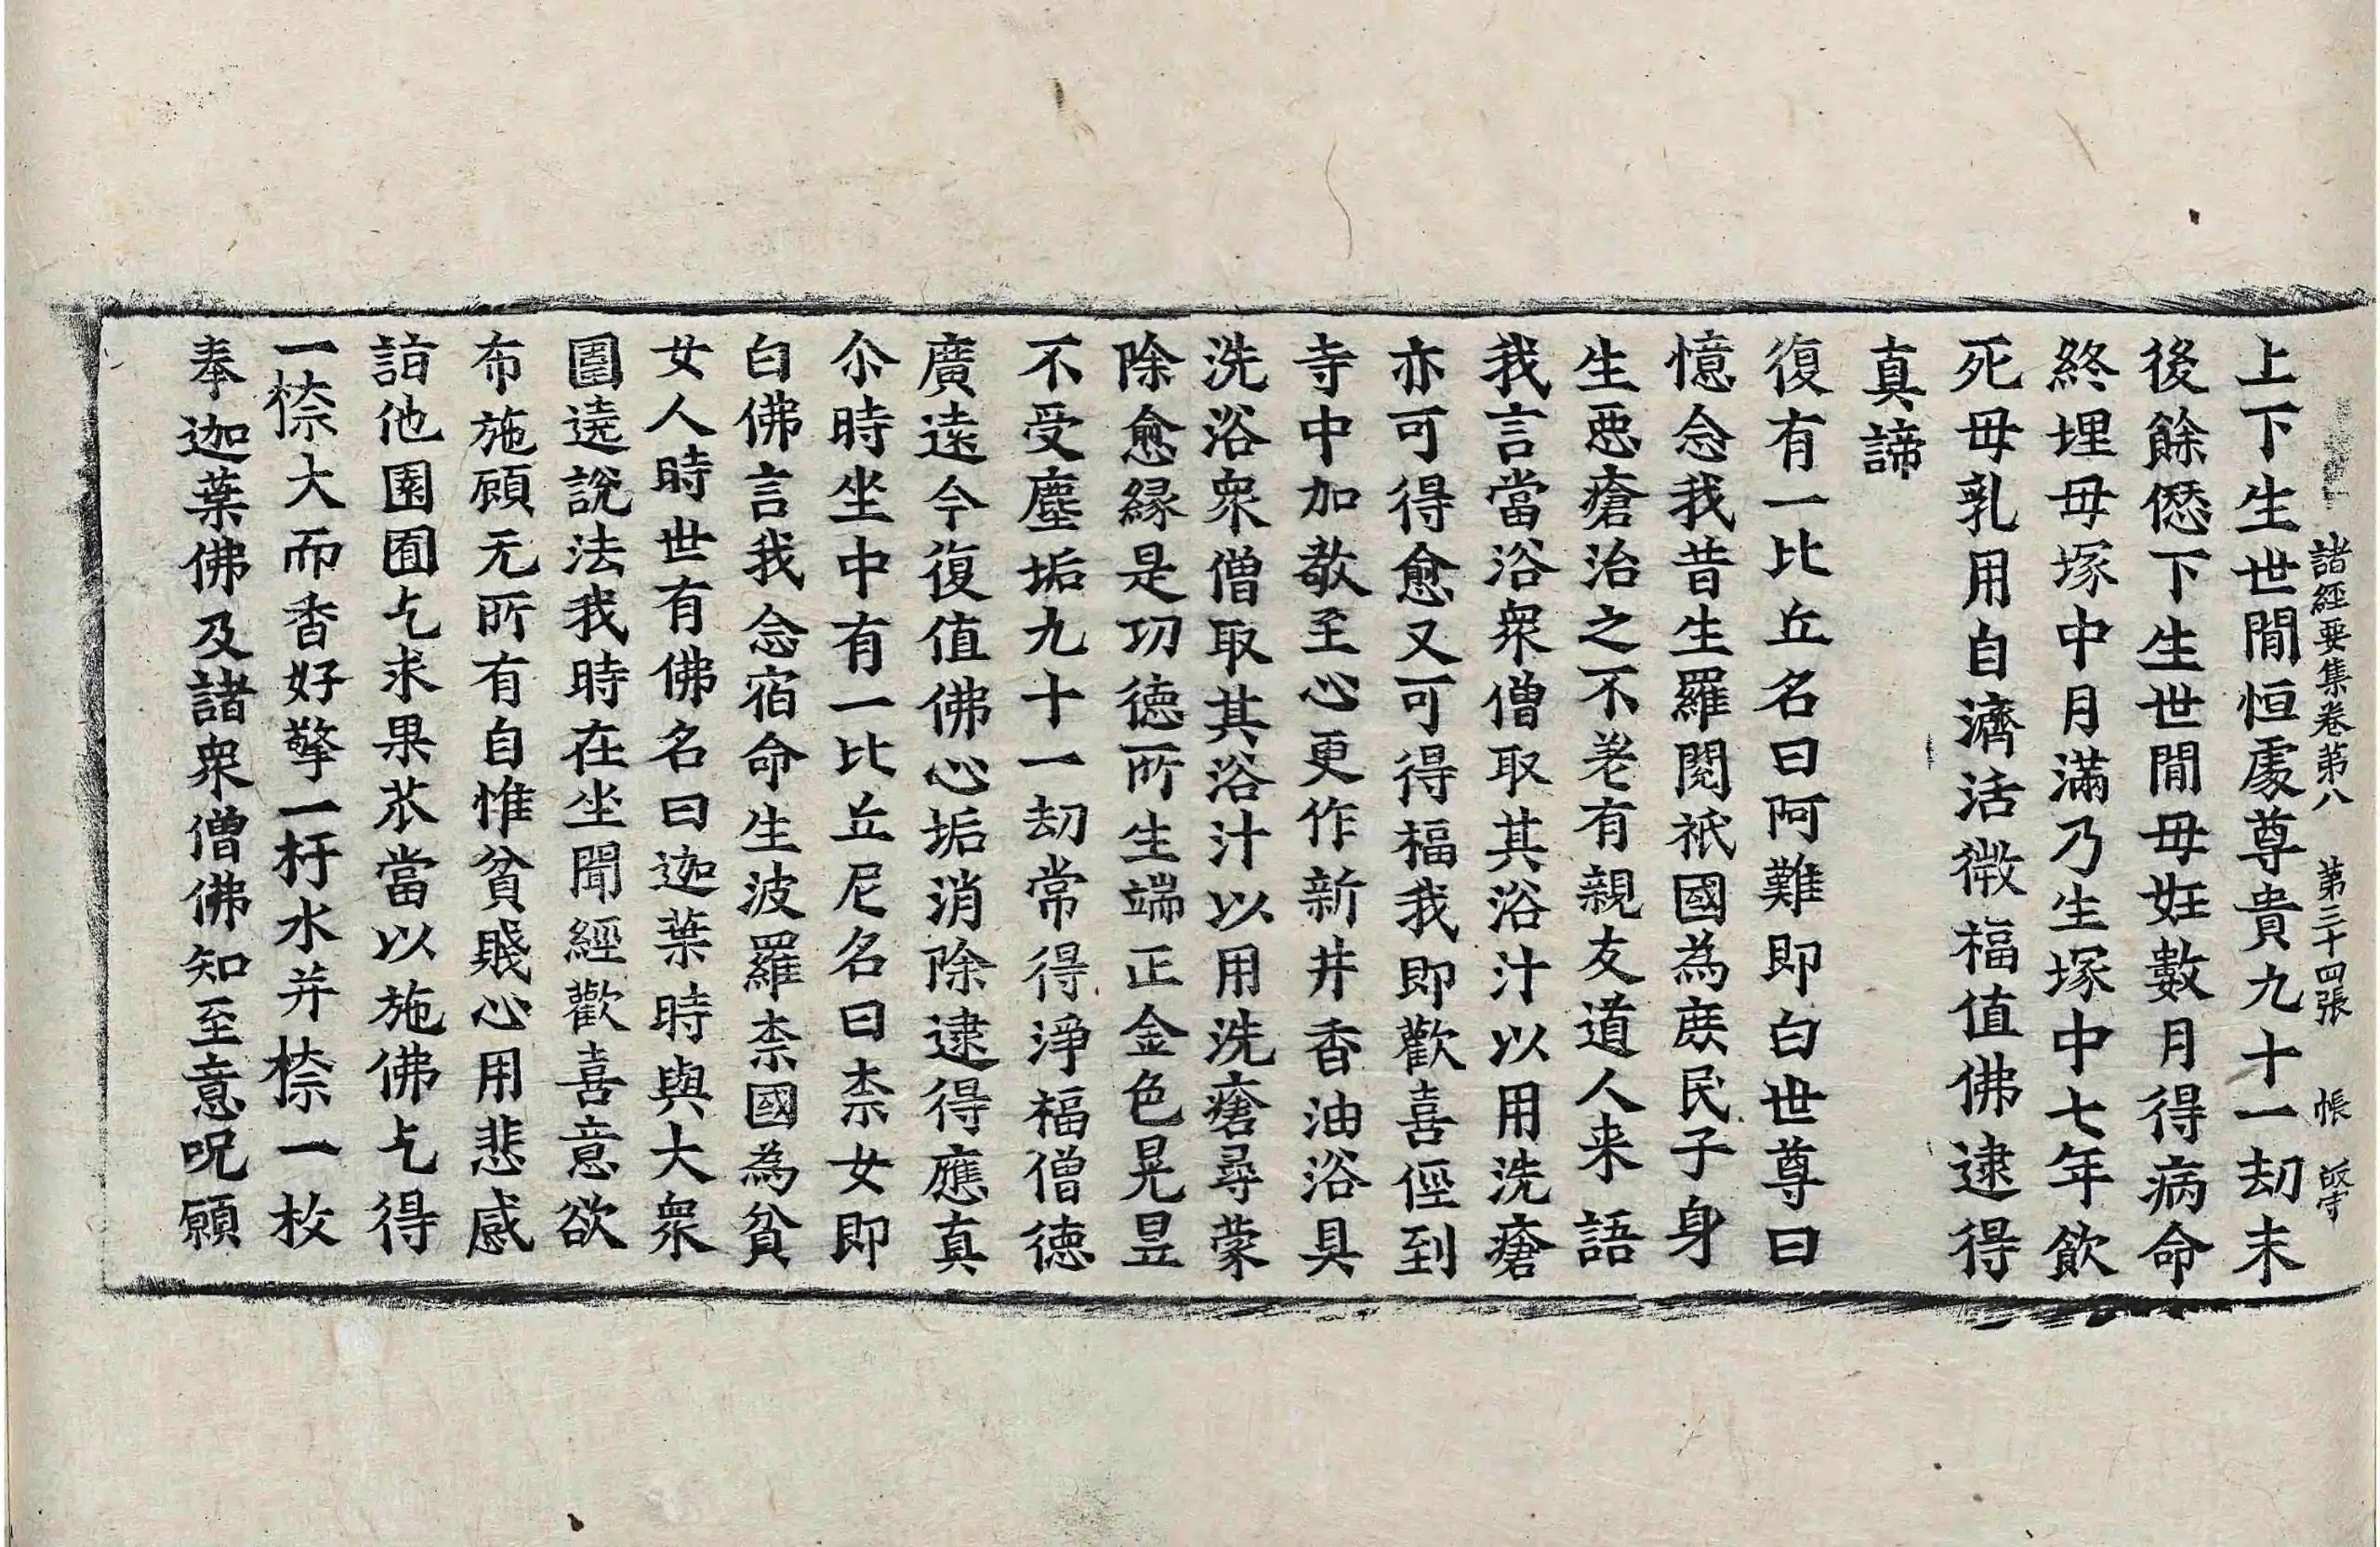 諸經要集卷第八 第三十四張 帳
上下生世間恒處尊貴九十一劫末
後餘愆下生世間毋妊數月得病命
終埋毋塚中月滿乃生塚中七年飲
死毋乳用自濟活微福值佛逮得
真諦
復有一比丘名曰阿難即白世尊曰
憶念我昔生羅閱祇國為庻民子身
生惡瘡治之不差有親友道人来語
我言當浴衆僧取其浴汁以用洗瘡
亦可得愈又可得福我即歡喜俓到
寺中加敬至心更作新井香油浴具
洗浴衆僧取其浴汁以用洗瘡尋蒙
除愈緣是功德所生端正金色晃昱
不受塵垢九十一劫常得淨福僧徳
廣遠今復值佛心垢消除逮得應真
尒時坐中有一比丘尼名曰柰女即
白佛言我念宿命生波羅柰國為貧
女人時世有佛名曰迦葉時與大衆
圍遶說法我時在坐聞經歡喜意欲
布施顧无所有自惟貧賤心用悲感
詣他園囿乞求果苽當以施佛乞得
一㮈大而香好擎一杅水并㮈一枚
奉迦葉佛及諸衆僧佛知至意呪願